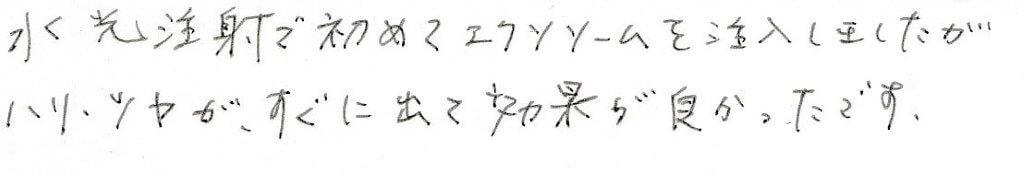 水光注射で初めてエクソソームを注入しましたが
ハリ、ツヤが、すぐに出て効果が良かったです。